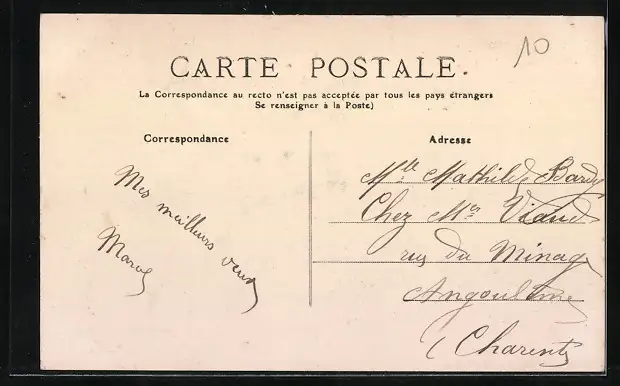 10
CARTE POSTALE.
La Correspondance au recto n'est pas acceptée par tous les pays étrangers
Se renseigner à la Poste)
Correspondance
Adresse
Mes meilleurs vœux
Mlle Mathilde Bardy
Chez Mr Viaud
rue du Minage
Angoulême
(Charente